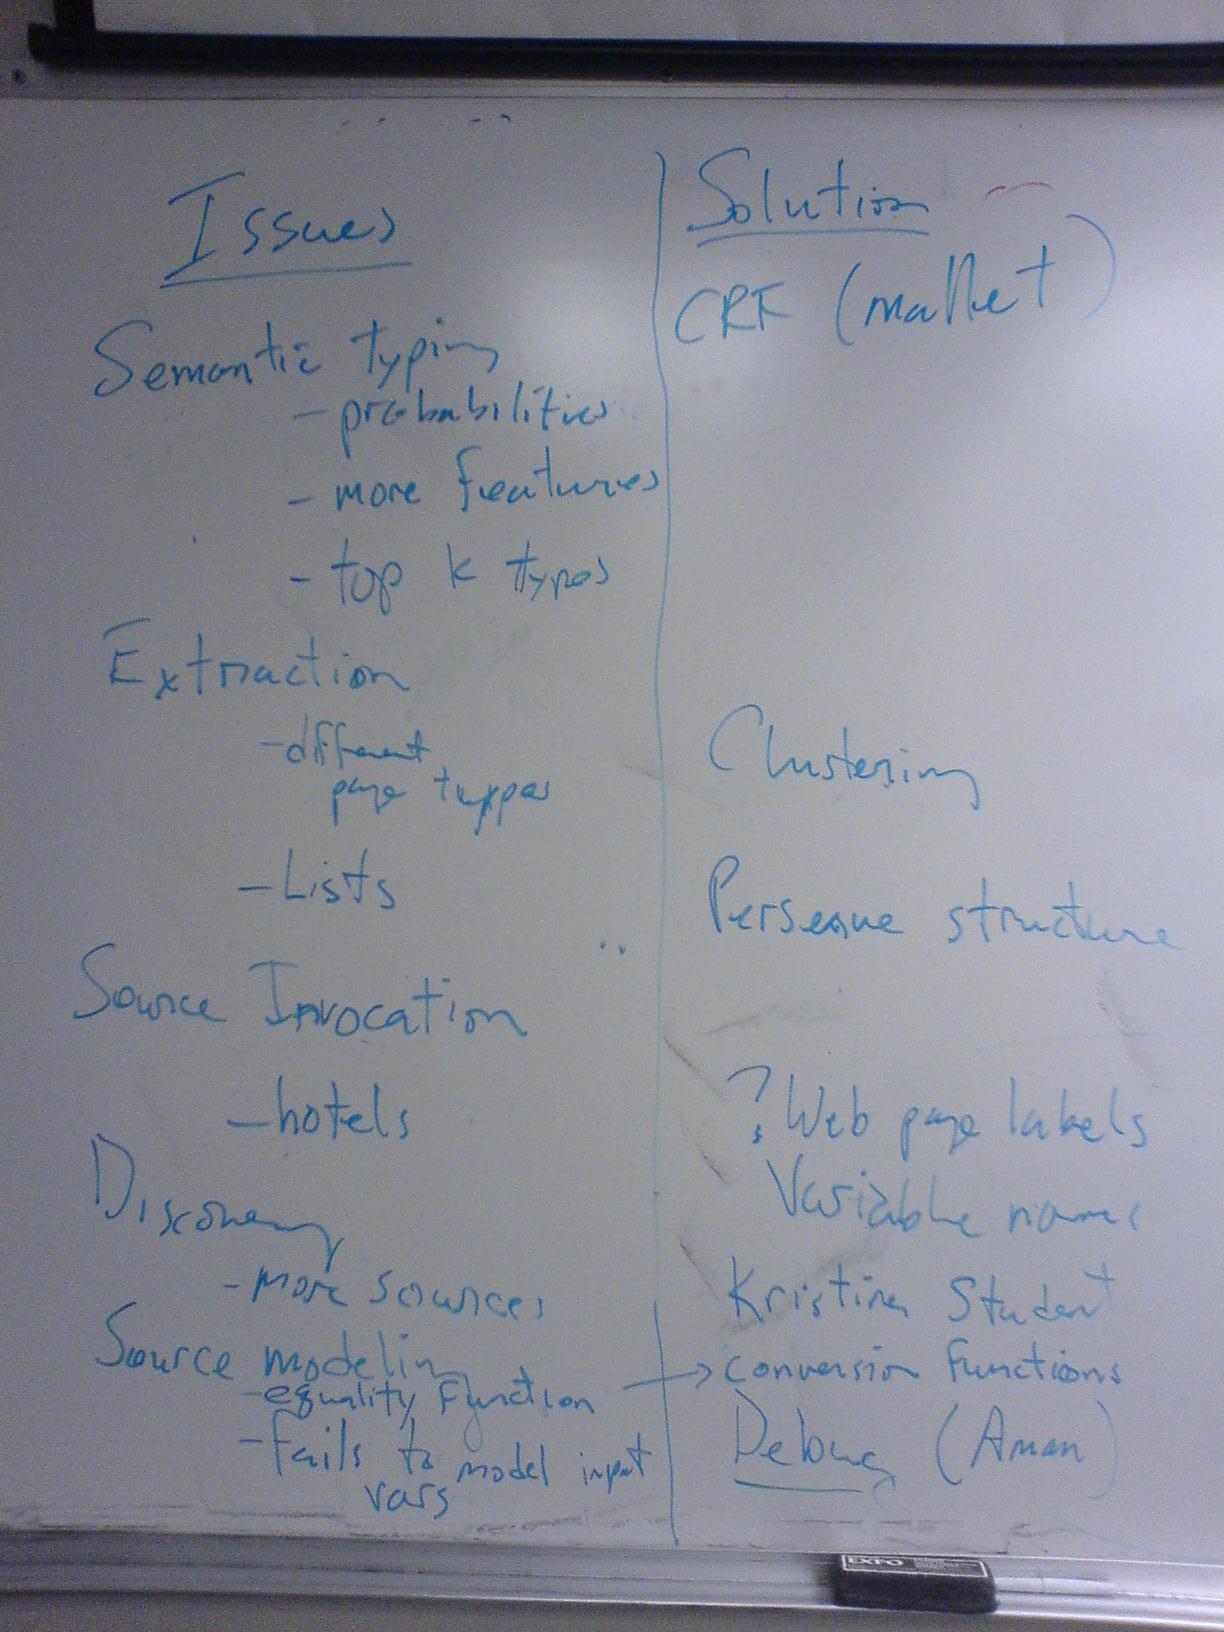 Issues
Semantic typing
- probabilities
- more features
- top k types
Extraction
- different
page types
- Lists
Source Invocation
- hotels
Discovery
- more sources
Source modeling
- equality function
- fails to model input
vars
Solution
CRF (mallet)
Clustering
structure
? Web page labels
Variable names
Kristina Student
→ conversion functions
Debug (Aman)
EXPO